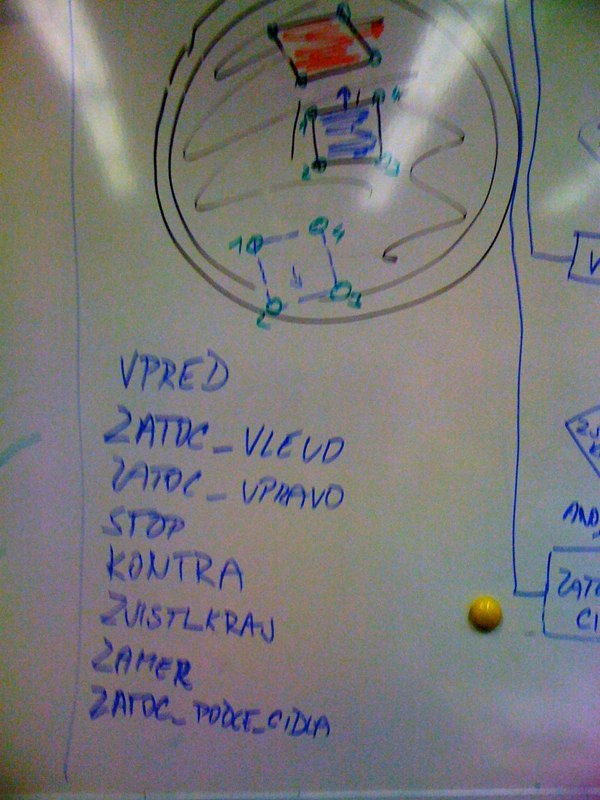 1 4
2 3
1 4
2 3
V
VPRED
ZATOC_VLEVO
ZATOC_VPRAVO
STOP
KONTRA
ZJISTI_KRAJ
ZAMER
ZATOC_PODLE_CIDLA
ANO
ZATO
CI